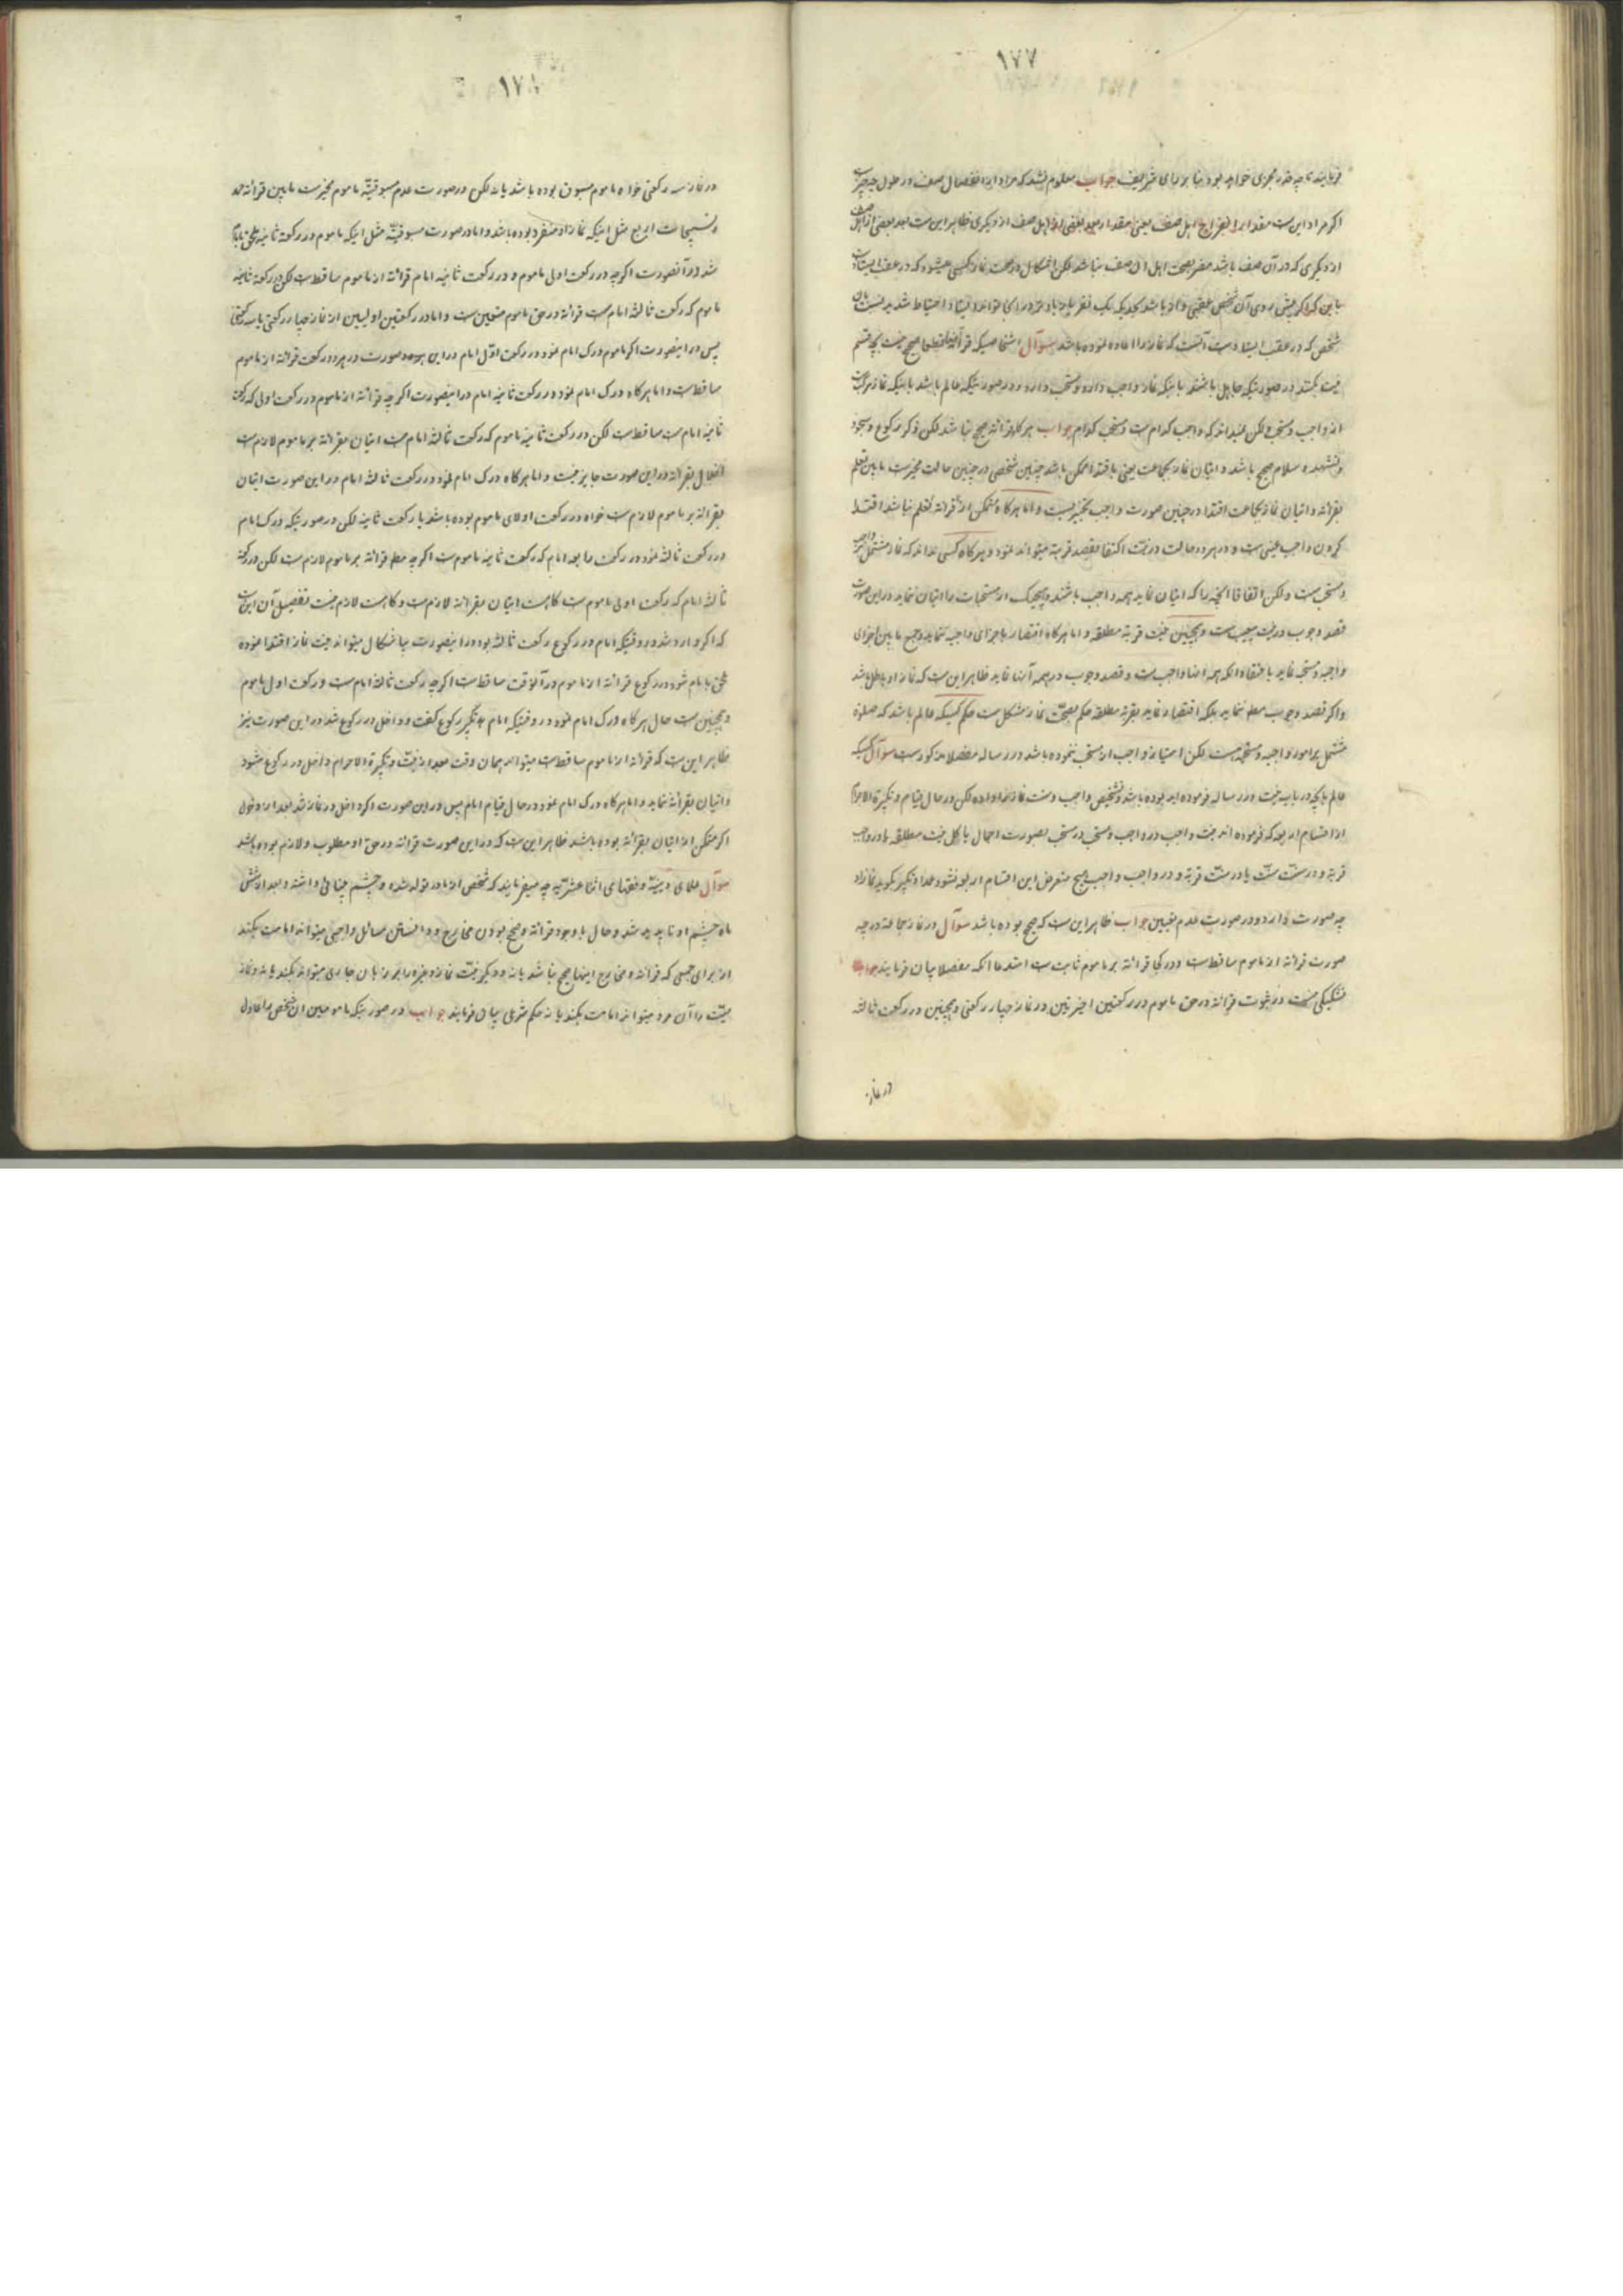 ۱۷۷
فرمایند تا چه قدر مجزی خواهد بود بنا بر رأی شریف جواب معلوم نشد که مراد از انفصال صف در طول چه چیز است
اگر مراد این است مقدار انفراج اهل صف یعنی مقدار بعد بعضی از اهل صف از دیگری ظاهر این است بعد بعضی از اهل صف
از دیگری که در آن صف باشد مضر بصحت اهل آن صف نباشد لکن اشکال در صحت نماز کسی میشود که در عقب ایستاده
شخص که در عقب ایستاده است آنست که نماز را اعاده نموده باشد سؤال اشخاصیکه قرائة قطعا صحیح نیست بچه قسم
نیت بکنند در صورتیکه جاهل باشند باینکه نماز واجب دارد و مستحب دارد و در صورتیکه عالم باشد باینکه نماز مرکب است
از واجب و مستحب ولکن نمیداند که واجب کدام است و مستحب کدام جواب هر گاه قرائة صحیح نباشد لکن ذکر رکوع و سجود
و تشهد و سلام صحیح باشد و اتیان نماز بجماعت یعنی باقتدا ممکن باشد چنین شخصی در چنین حالت مخیر است مابین تعلم
بقرائة و اتیان نماز بجماعت اقتدا در چنین صورت واجب تخییریست و اما هر گاه متمکن از قرائة تعلم نباشد اقتدا
کردن واجب عینی است و در هر دو حالت در نیت اکتفا بقصد قربة میتواند نمود و هر گاه کسی نداند که نماز مشتمل بر واجب
و مستحب است ولکن اتفاقا آنچه را که اتیان نماید همه واجب باشند و هیچیک از مستحبات را اتیان ننماید در این صورت
قصد وجوب در نیت بیعیب است و همچنین نیت قربة مطلقه و اما هر گاه اقتصار باجزای واجبه ننماید و جمع مابین اجزای
واجبه و مستحبه نماید باعتقاد آنکه همه اینها واجب است و قصد وجوب در همه آنها نماید ظاهر این است که نماز او باطل باشد
و اگر قصد وجوب مطلق ننماید بلکه اقتصار نماید بقربة مطلقه حکم بصحّت نماز مشکل است حکم کسیکه عالم باشد که صلوة
مشتمل بر امور واجبه و مستحبه است لکن امتیاز واجب از مستحب ننموده باشد در رساله مفصلا مذکور است سؤال کسیکه
عالم بآنچه در باب نیت در رساله فرموده اید بوده باشد و تشخیص واجب و سنت نماز را داده لکن در حال قیام و تکبیرة الاحرام
از اقسام اربعه که فرموده اند نیت واجب در واجب و مستحب در مستحب بصورت اجمال یا بکل نیت مطلقه یا در واجب
قربة و در سنّت سنّت یا در سنّت قربة و در واجب واجب هیچ متعرض این اقسام اربعه نشود عمدا و تکبیر بگوید نماز او
چه صورت دارد و در صورت عدم تعیین جواب ظاهر این است که صحیح بوده باشد سؤال در نماز جماعة در چه
صورت قرائة از ماموم ساقط است و در کجا قرائة بر ماموم ثابت است استدعا آنکه مفصلا بیان فرمایند جواب
تشکیکی نیست در ثبوت قرائة در حق ماموم در رکعتین اخیرتین در نماز چهار رکعتی و همچنین در رکعت ثالثه
در نماز
۱۷۸
در نماز سه رکعتی خواه ماموم مسبوق بوده باشد یا نه لکن در صورت عدم مسبوقیّة ماموم مخیر است مابین قرائة حمد
و تسبیحات اربع مثل اینکه نماز او منفرد بوده باشد و اما در صورت مسبوقیّة مثل اینکه ماموم در رکعة ثانیه ملحق بامام
شد در آنصورت اگر چه در رکعت اولی ماموم و در رکعت ثانیه امام قرائة از ماموم ساقط است لکن در رکعة ثانیه
ماموم که رکعت ثالثه امام است قرائة در حق ماموم متعین است و اما در رکعتین اولیین از نماز چهار رکعتی یا سه رکعتی
پس در اینصورت اگر ماموم درک امام نمود در رکعت اوّل امام در این صورت در هر دو رکعت قرائة از ماموم
ساقط است و اما هر گاه درک امام نمود در رکعت ثانیه امام در اینصورت اگر چه قرائة از ماموم در رکعت اولی که رکعت
ثانیه امام است ساقط است لکن در رکعت ثانیه ماموم که رکعت ثالثه امام است اتیان بقرائة بر ماموم لازم است
اخلال بقرائة در این صورت جایز نیست و اما هر گاه درک امام نمود در رکعت ثالثه امام در این صورت اتیان
بقرائة بر ماموم لازم است خواه در رکعت اولای ماموم بوده باشد یا رکعت ثانیه لکن در صورتیکه درک امام
در رکعت ثالثه نمود در رکعت رابعه امام که رکعت ثانیه ماموم است اگر چه مطلق قرائة بر ماموم لازم است لکن در رکعة
ثالثه امام که رکعت اولی ماموم است گاه است اتیان بقرائة لازم است و گاه است لازم نیست تفصیل آن این است
که اگر وارد شد در وقتیکه امام در رکوع رکعت ثالثه بود در اینصورت بی اشکال میتواند نیت نماز اقتدا نموده
ملحق بامام شود در رکوع قرائة از ماموم در آنوقت ساقط است اگر چه رکعت ثالثه امام است و رکعت اول ماموم
و همچنین است حال هر گاه درک امام نمود در وقتیکه امام تکبیر رکوع گفت و داخل در رکوع شد در این صورت نیز
ظاهر این است که قرائة از ماموم ساقط است میتواند همان وقت بعد از نیّت و تکبیرة الاحرام داخل در رکوع شود
و اتیان بقرائة ننماید و اما هر گاه درک امام نمود در حال قیام امام پس در این صورت اگر داخل در نماز شد بعد از دخول
اگر متمکن از اتیان بقرائة بوده باشد ظاهر این است که در این صورت قرائة در حق او مطلوب و لازم بوده باشد
سؤال علمای دینیّه و فقهای اثنا عشریّه چه میفرمایند که شخص از مادر تولد شده و چشم بینائی داشته و بعد از شش
ماه چشم او ناپدید شد و حال با وجود قرائة صحیح بودن مخارج و دانستن مسائل واجبی میتواند امامت بکند
از برای جمعی که قرائة و مخارج اینها صحیح نباشد یا نه و دیگر نیّت نماز و غیره را بر زبان جاری میتواند بکند یا نه و نماز
میّت را آن مرد میتواند امامت بکند یا نه حکم شرعی بیان فرمایند جواب در صورتیکه مامومین آن شخص را عادل